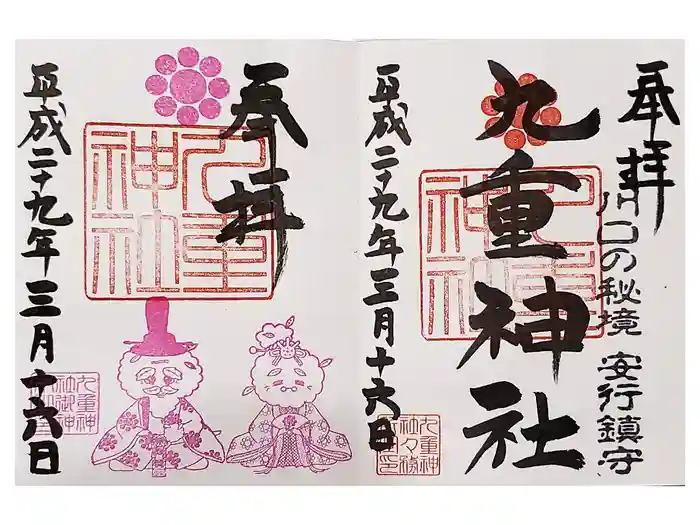 奉拝
川口の秘境 安行鎮守
九重神社
平成二十九年三月十六日
奉拝
九重神社
平成二十九年三月十六日
九重神社